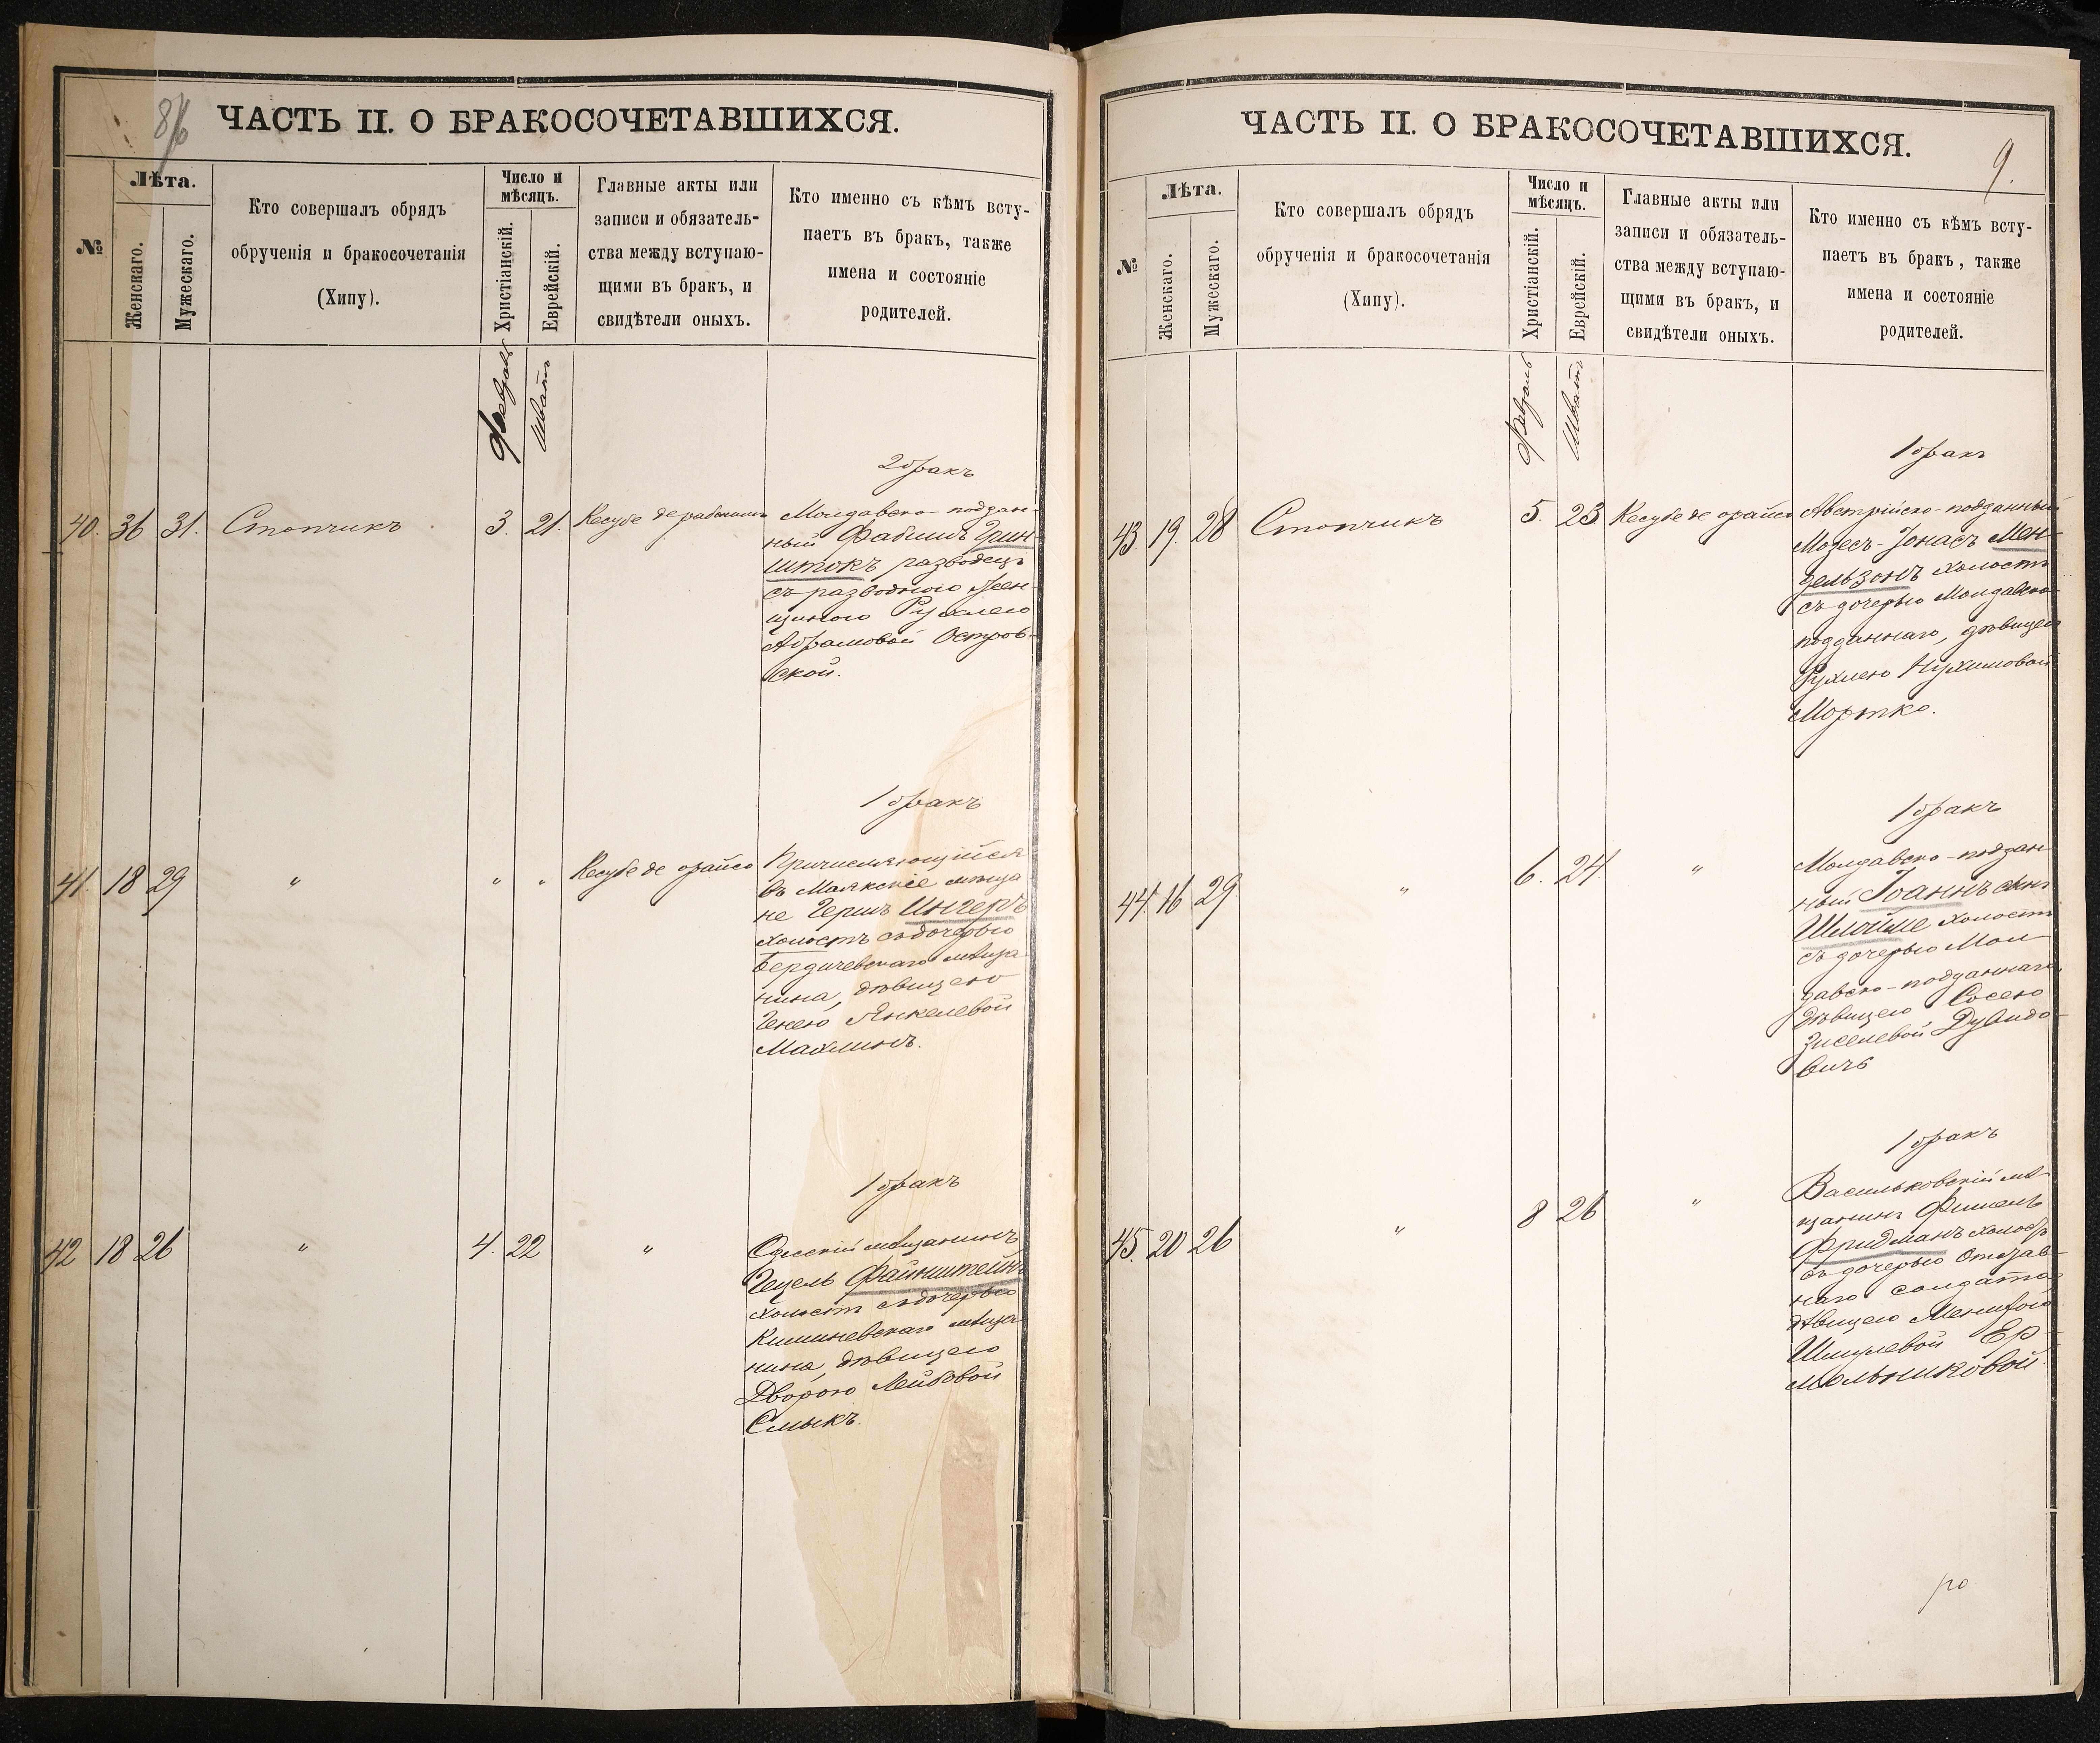 8/б
ЧАСТЬ II. О БРАКОСОЧЕТАВШИХСЯ.
№
Лѣта.
Женскаго.
Мужескаго.
Кто совершалъ обрядъ
обрученія и бракосочетанія
(Хипу).
Число и
мѣсяцъ.
Христіанскій.
Еврейскій.
Главные акты или
записи и обязатель-
ства между вступаю-
щими въ бракъ, и
свидѣтели оныхъ.
Кто именно съ кѣмъ всту-
паетъ въ бракъ, также
имена и состояніе
родителей.
Февраль
Шватъ
2 бракъ
40. 36 31. Стопчикъ 3. 21. Кесубе де рабонимъ
Молдавско-поддан-
ный Фабишъ Грин-
штокъ разводецъ
съ разводною жен-
щиною Рухлею
Абрамовой Остров-
ской.
1 бракъ
41. 18 29 " " " Кесубе де орайсо
Причисляющійся
въ Маякскіе мѣща
не Гершъ Ингеръ
холостъ съ дочерью
Бердичевскаго мѣща
нина, дѣвицею
Генею Янкелевой
Махлинъ.
1 бракъ
42 18 26 " 4. 22 "
Одесскій мѣщанинъ
Гецель Файнштейнъ
холостъ съ дочерью
Кишиневскаго мѣща
нина, дѣвицею
Дворою Лейбовой
Смыкъ.
ЧАСТЬ II. О БРАКОСОЧЕТАВШИХСЯ.
9.
№
Лѣта.
Женскаго.
Мужескаго.
Кто совершалъ обрядъ
обрученія и бракосочетанія
(Хипу).
Число и
мѣсяцъ.
Христіанскій.
Еврейскій.
Главные акты или
записи и обязатель-
ства между вступаю-
щими въ бракъ, и
свидѣтели оныхъ.
Кто именно съ кѣмъ всту-
паетъ въ бракъ, также
имена и состояніе
родителей.
Февраль
Шватъ
1 бракъ
43. 19. 28 Стопчикъ 5. 23 Кесубе де орайсо
Австрійско-подданный
Мозесъ-Іонасъ Мен-
дельзонъ холостъ
съ дочерью Молдавско-
подданнаго, дѣвицею
Рухлею Нухимовой
Мортко.
1 бракъ
44. 16 29. " 6. 24. "
Молдавско-поддан-
ный Іоаннъ сынъ
Шлойме холостъ
съ дочерью Мол-
давско-подданнаго
дѣвицею Сосею
Зиселевой Дувидо-
вичъ
1 бракъ
45. 20 26 " 8 26 "
Васильковскій мѣ-
щанинъ Фишель
Фридманъ холостъ
съ дочерью Отстав-
наго солдата,
дѣвицею
Шмулевой Ер-
мольниковой.